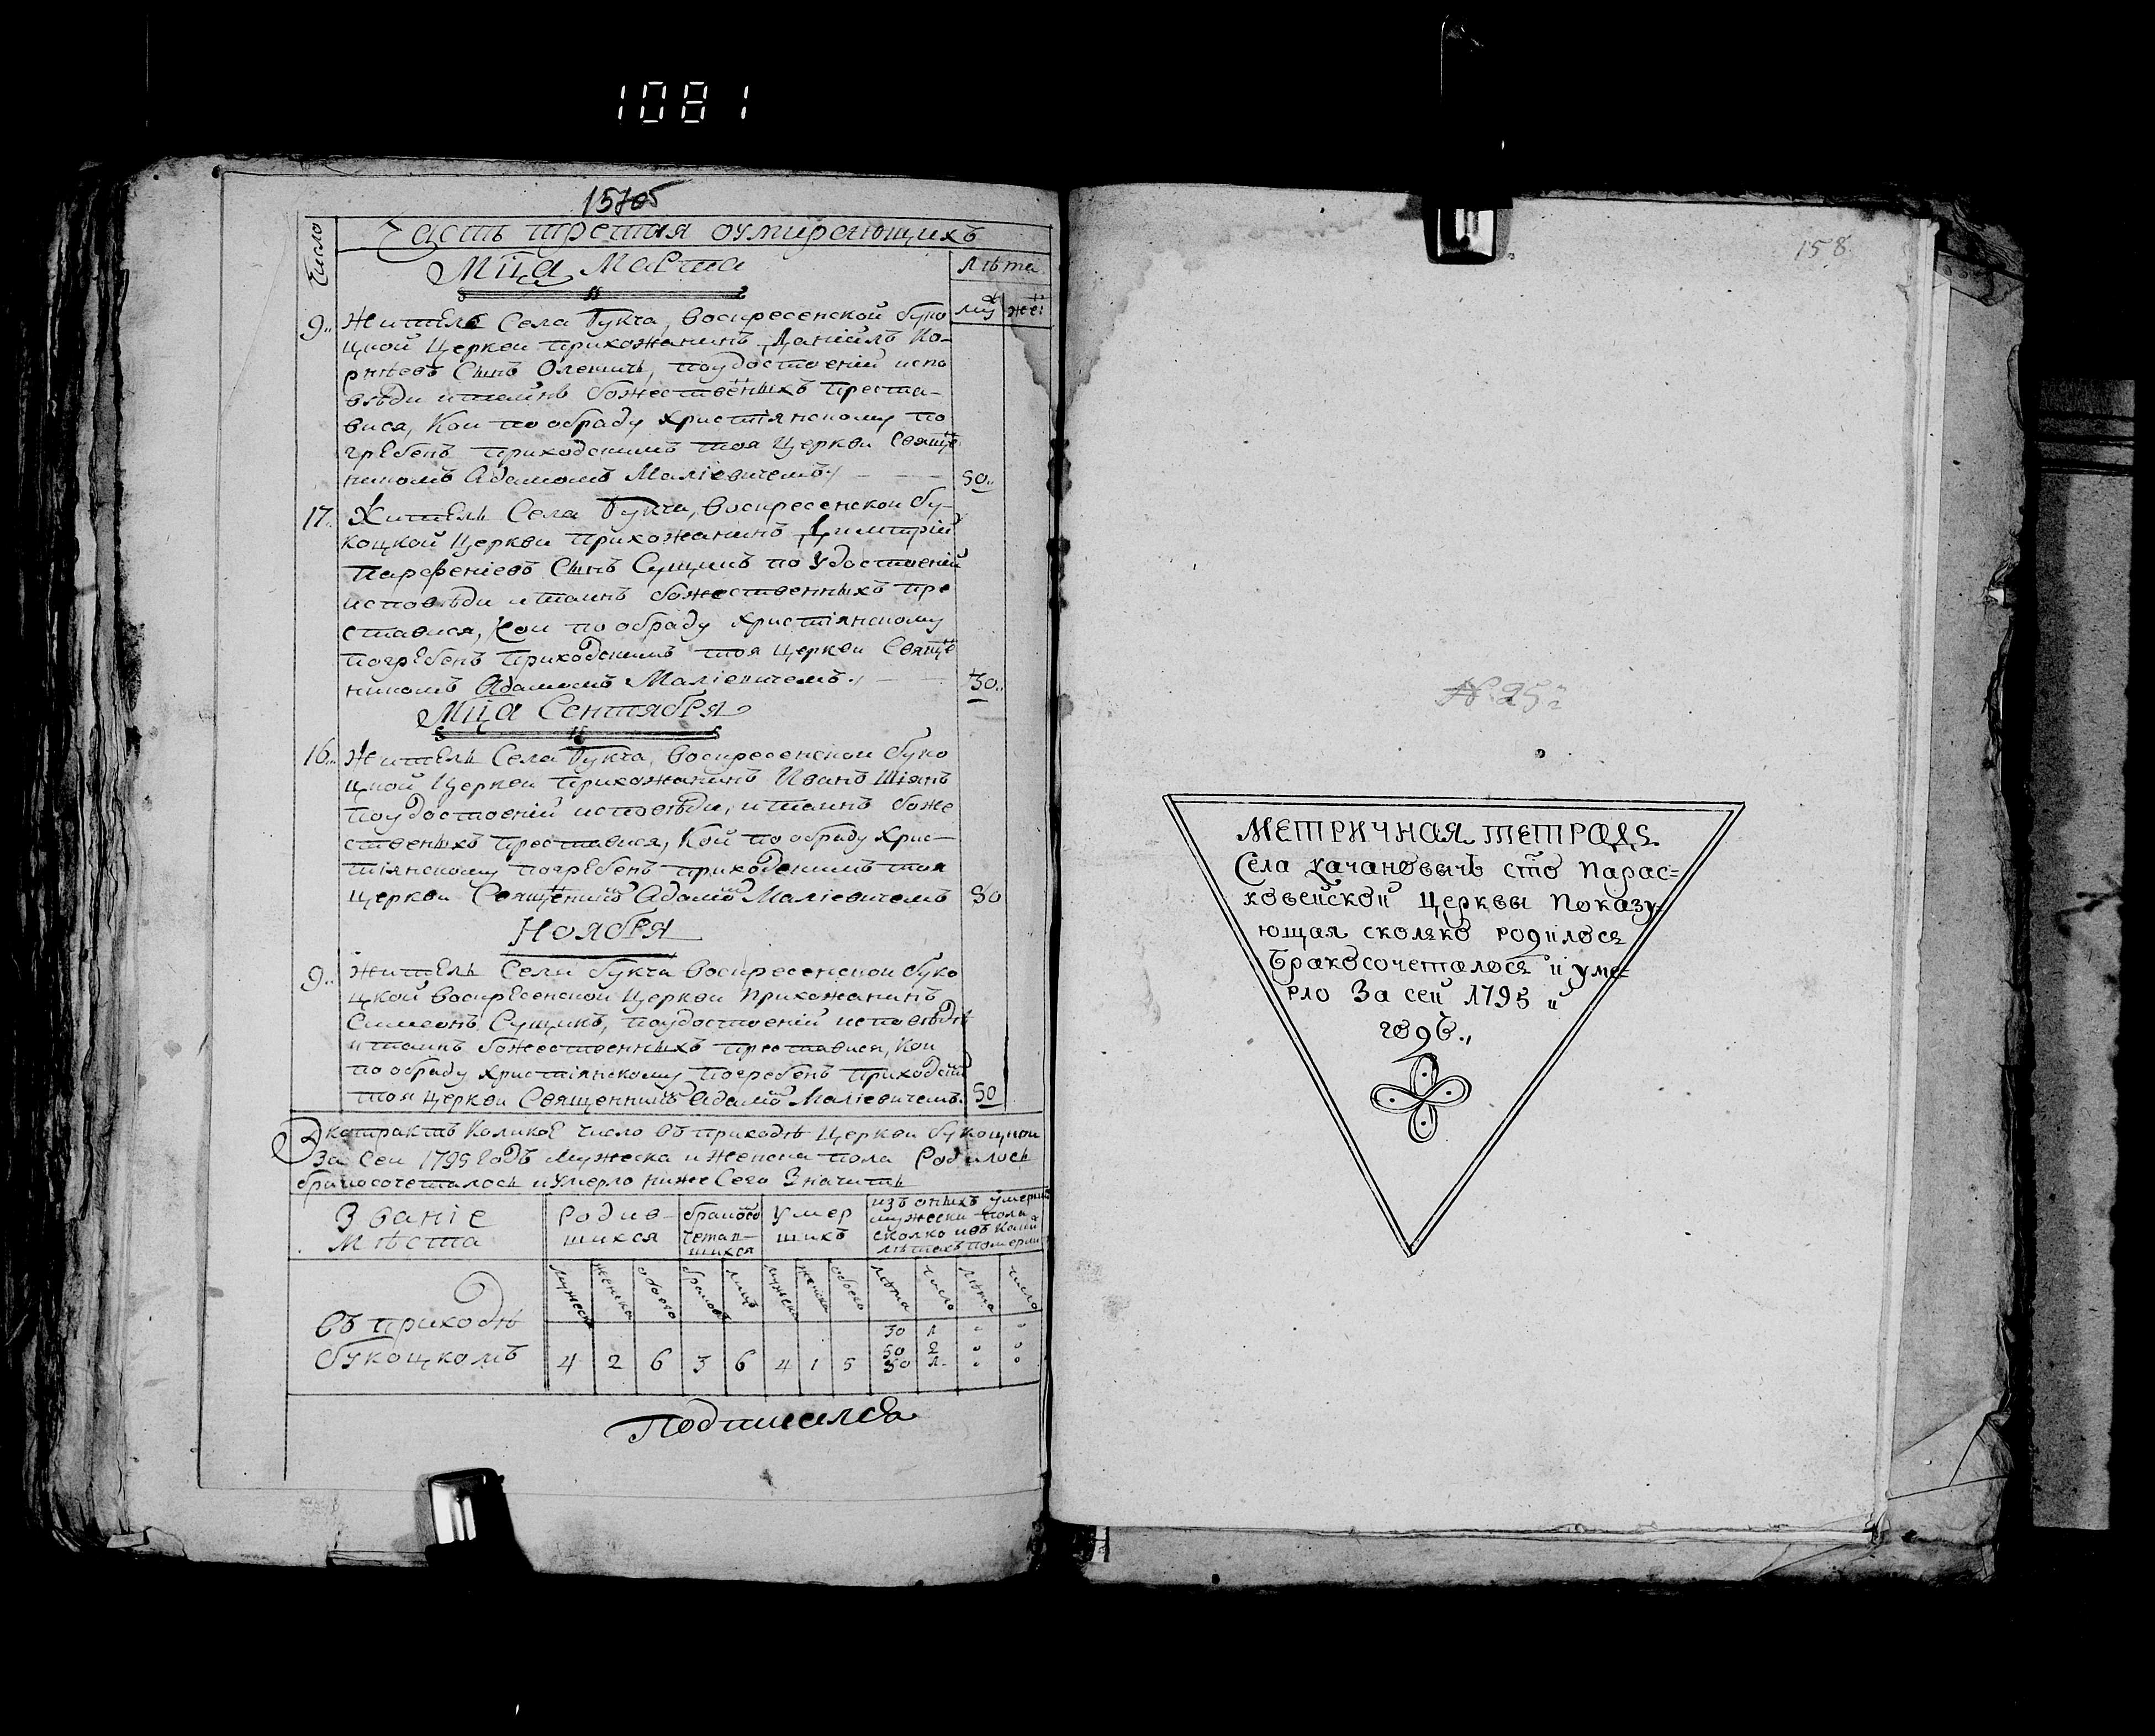 1081
Часть третая оумирающихъ
Число
Мца Марта
Лѣта
муж жен
9.. Житель Села Букча, воскресенской буко
цкой Церкви прихожанинъ Даніилъ Ко-
рнѣевъ Сынъ Олешичь, поудостоеніи испо
вѣди итаинъ божественыхъ преста-
вися, Кои по обраду христіянскому по
гребенъ приходскимъ тоя Церкви Свяще
никомъ Адамомъ Маліевичемъ 50..
17.. Житель Села Букча, воскресенской бу-
коцкой Церкви прихожанинъ Димитрій
Парфеніевъ Сынъ Сущикъ по удостоеніи
исповѣди итаинъ божественныхъ пре
ставися, Кои по обраду христіянскому
погребенъ приходскимъ тоя Церкви Свяще
никомъ Адамомъ Маліевичемъ. 30..
Мца Сентября
16.. Житель Села Букча, воскресенской буко
цкой Церкви прихожанинъ Иванъ Шіянъ
поудостоеніи исповѣди, итаинъ боже
ственыхъ преставися, Кой по обраду хрис-
тіянскому погребенъ приходскимъ тоя
Церкви Священикомъ Адамомъ Маліевичемъ
Ноября
9.. Житель Села букча воскресенской буко
цкой воскресенской Церкви прихожанинъ
Симеонъ Сущикъ, поудостоеніи исповѣди
итаинъ божественныхъ преставися, Кои
по обраду христіянскому погребенъ приходским
тоя Церкви Священником Адамом Маліевичемъ. 50
Экстрактъ Коликое число въ приходѣ Церкви букоцкой
За Сеи 1795 Годъ мужеска и женска пола Родилось
бракосочеталось иумерло ниже Сего Значитъ
Званіе Мѣста
Родив-шихся
бракосо четав-шихся
Умер шихъ
изъ оныхъ умерших мужеска пола сколко ивъ каких лѣтахъ померли
мужеска женска обоего браковъ лицъ мужеска женска обоего лѣта число лѣта число
въ приходѣ
букоцкомъ 4 2 6 3 6 4 1 5
30 1
50 2
Подписался
158
№ 25й
МЕТРИЧНАЯ ТЕТРАДЬ
Села Качановычъ сто Парас=
ковейской Церквы Показу-
ющая сколько родилося
Бракосочеталося и уме=
рло За сеи 1795 й
годъ.,